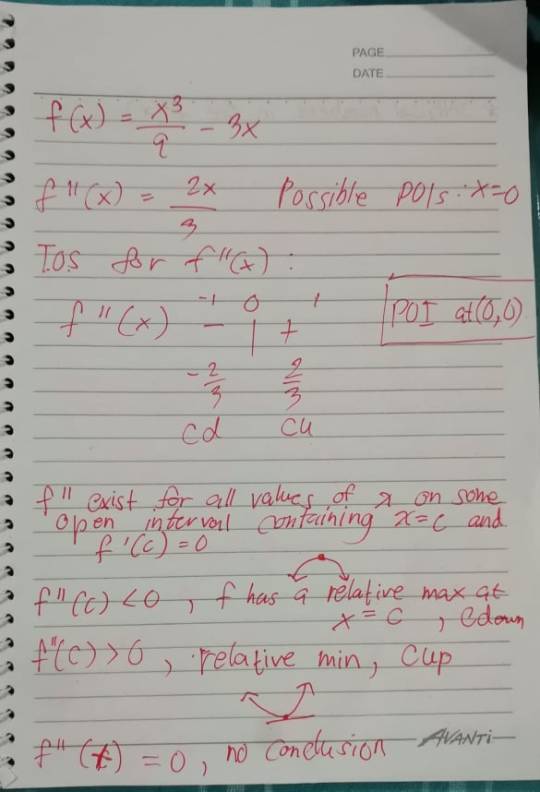 PAGE
DATE
f(x) = x³/9 - 3x
f''(x) = 2x/3 Possible POIs : x=0
T.O.S for f''(x) :
-1 0 1
f''(x) - | + POI at (0,0)
-2/3 2/3
Cd Cu
f'' exist for all values of x on some
open interval containing x=c and
f'(c) = 0
f''(c) < 0 , f has a relative max at
x = c , Cdown
f''(c) > 0 , relative min, Cup
f''(c) = 0 , no conclusion
AVANTi